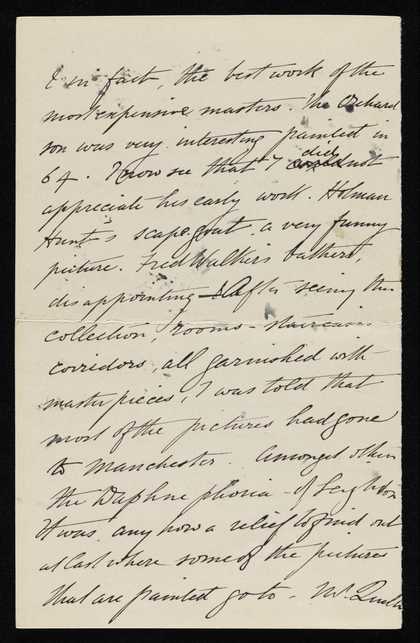 & in fact, the best work of the
most expensive masters. The Orchard
son was very interesting painted in
64. I now see that I did not
appreciate his early work. Holman
Hunt's scapegoat a very funny
picture. Fred Walkers bathers,
disappointing - After seeing this
collection, rooms - staircases
corridors, all garnished with
masterpieces, I was told that
most of the pictures had gone
to Manchester. Amongst others
the Daphnephoria - of Leighton
It was any how a relief to find out
at last where some of the pictures
that are painted go to - Mr.